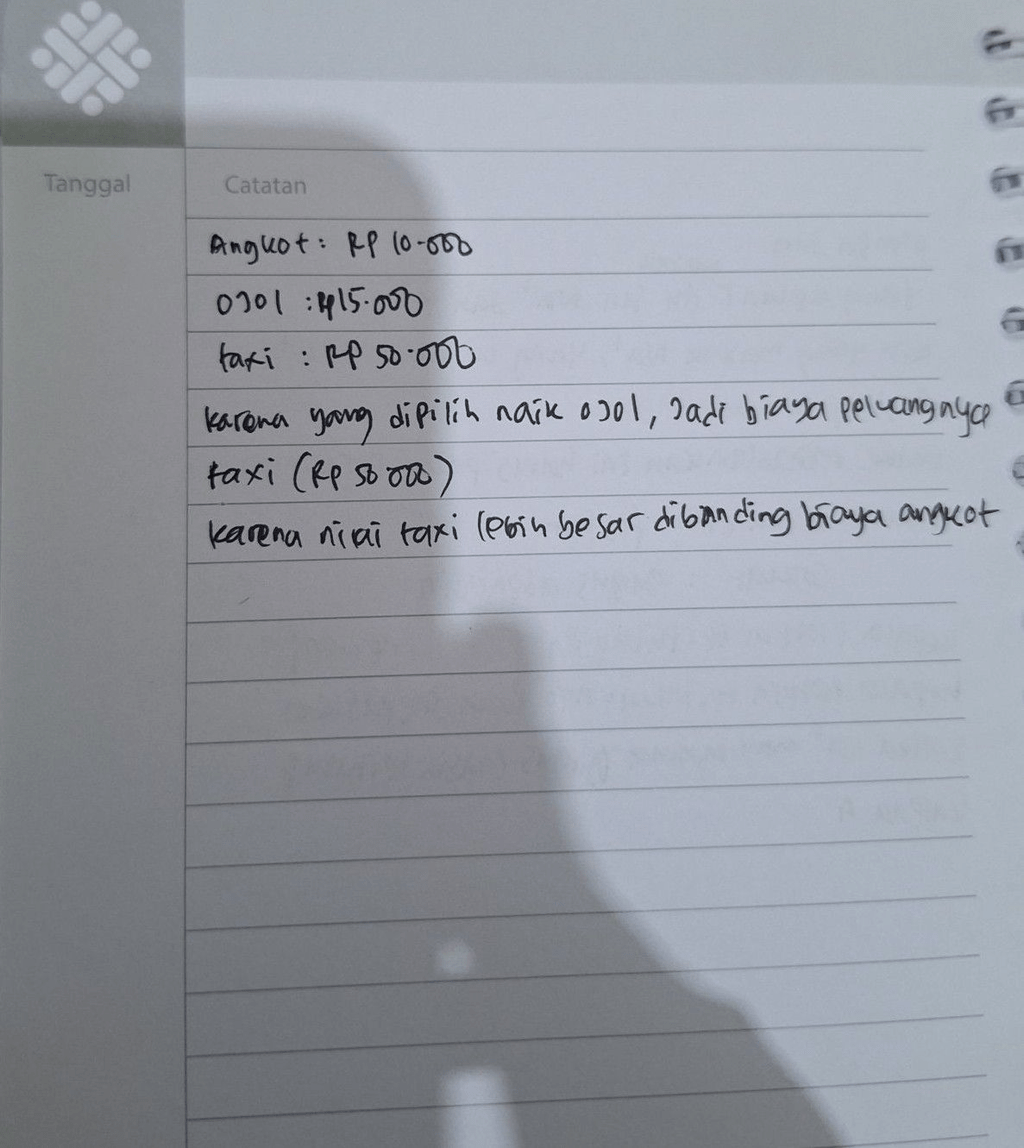 Tanggal
Catatan
Angkot : Rp 10.000
Ojol : Rp15.000
taxi : Rp 50.000
karena yang dipilih naik ojol, Jadi biaya peluangnya
taxi (Rp 50 000)
karena nilai taxi lebih besar dibanding biaya angkot